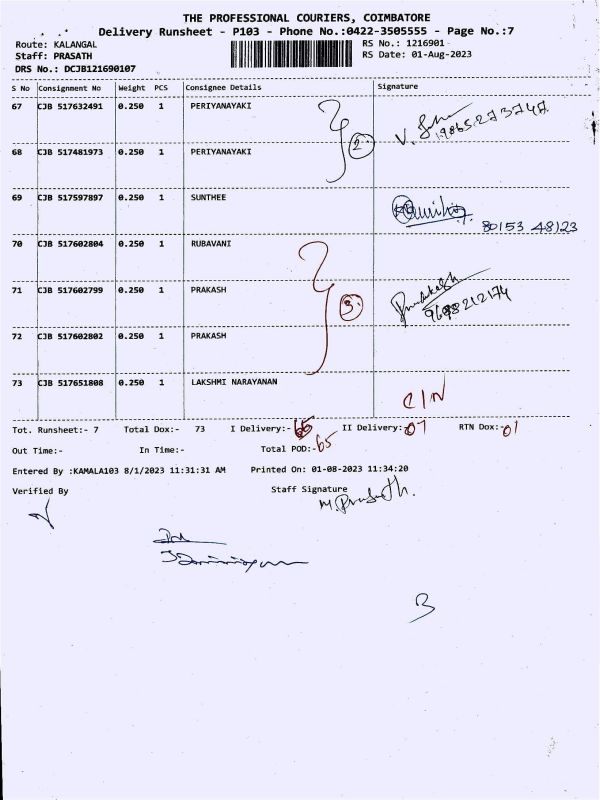 THE PROFESSIONAL COURIERS, COIMBATORE
Delivery Runsheet - P103 - Phone No.:0422-3505555 - Page No.:7
Route: KALANGAL
RS No.: 1216901
Staff: PRASATH
RS Date: 01-Aug-2023
DRS No.: DCJB121690107
S No Consignment No Weight PCS Consignee Details Signature
67 CJB 517632491 0.250 1 PERIYANAYAKI
68 CJB 517481973 0.250 1 PERIYANAYAKI
2
69 CJB 517597897 0.250 1 SUNTHEE
80153 48123
70 CJB 517602804 0.250 1 RUBAVANI
71 CJB 517602799 0.250 1 PRAKASH
3
72 CJB 517602802 0.250 1 PRAKASH
73 CJB 517651808 0.250 1 LAKSHMI NARAYANAN
C/N
Tot. Runsheet:- 7 Total Dox:- 73 I Delivery:- II Delivery:-07 RTN Dox:-01
Out Time:- In Time:- Total POD:-65
Entered By :KAMALA103 8/1/2023 11:31:31 AM Printed On: 01-08-2023 11:34:20
Verified By Staff Signature
M. Prasath.